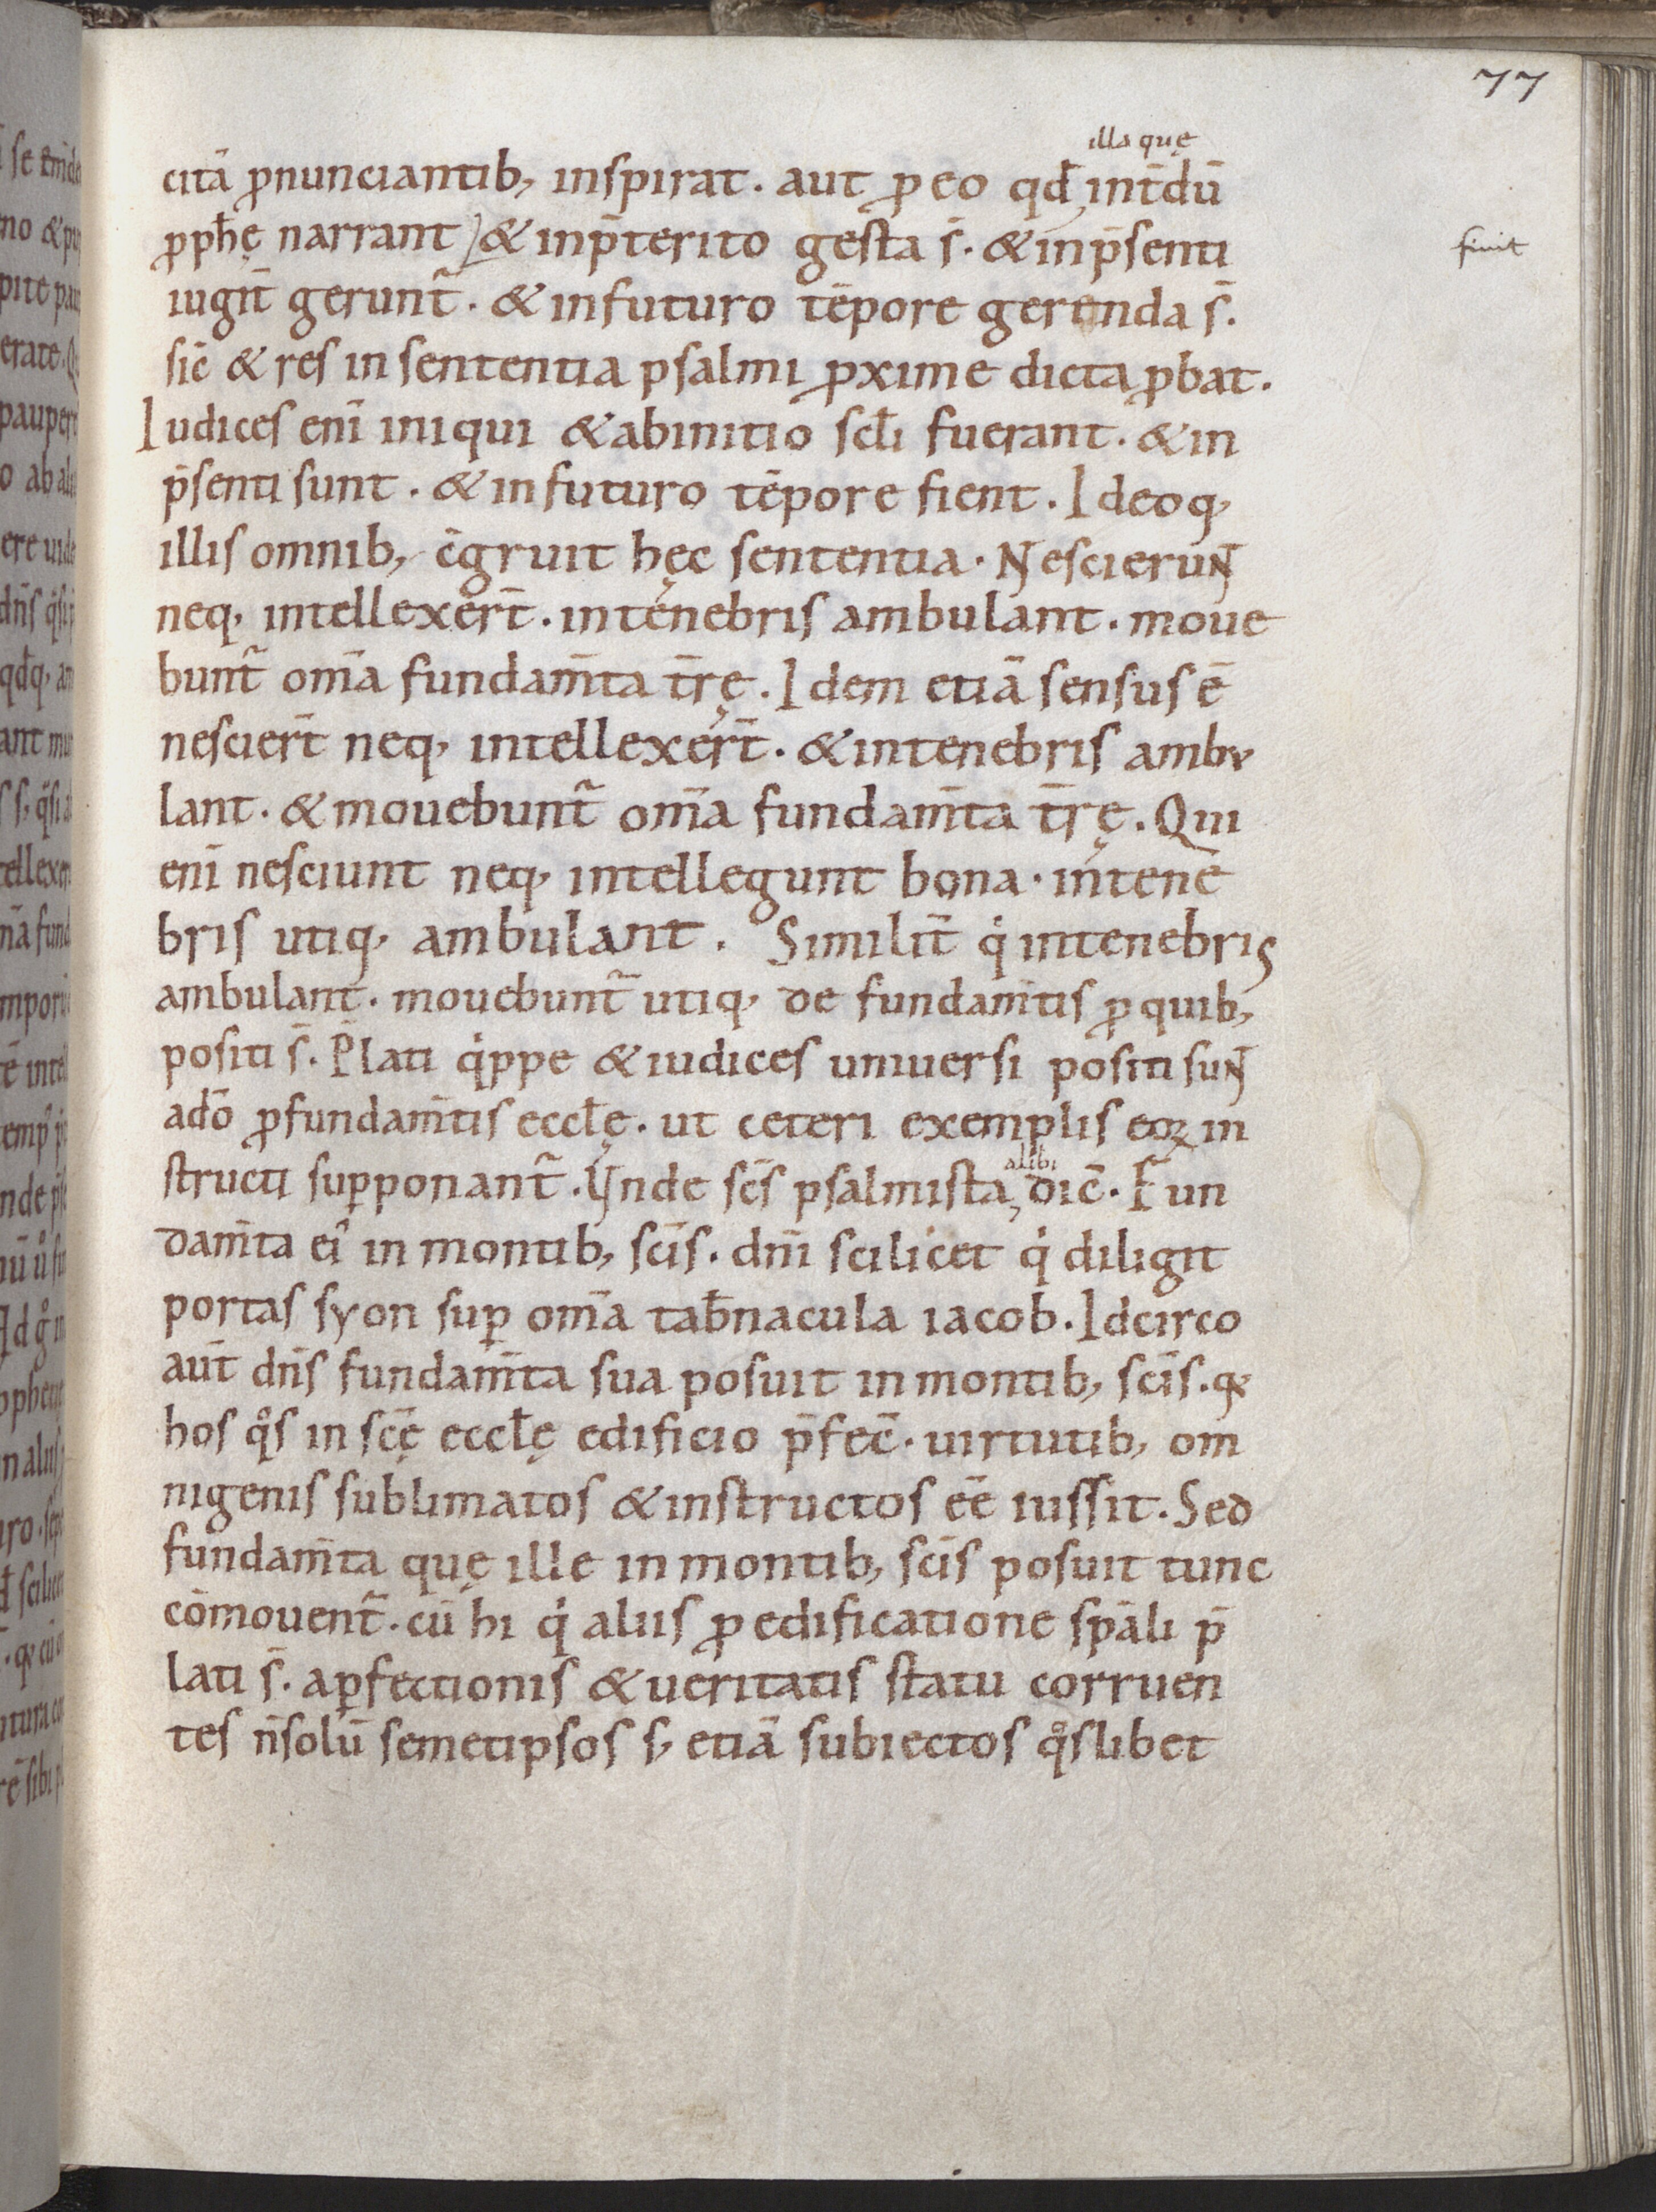 77
illa quę
citā ꝓnunciantib; inspirat. aut ꝓ eo qđ int̄dū
ꝓpħę narrant & inp̄terito gesta s̄. & inp̄senti
iugit̄ gerunt᷑. & infuturo tēpore gerenda s̄.
sic̄ & res in sententia psalmi ꝓxime dicta ꝓbat.
Iudices enī iniqui & abinitio scłi fuerant. & in
p̄senti sunt. & infuturo tēpore fient. Ideoq;
illis omnib; c̄gruit hęc sententia. Nescierunt
neq; intellexer̄t. intenebris ambulant. moue
bunt᷑ om̄a fundam̄ta t̄rę. Idem etiā sensus ē
nescier̄t neq; intellexer̄t. & intenebris ambu
lant. & mouebunt᷑ om̄a fundam̄ta t̄rę. Qui
enī nesciunt neq; intellegunt bona. intene
bris utiq; ambulant. Similit̄ qi intenebris
ambulant. mouebunt᷑ utiq; de fundam̄tis ꝓ quib;
positi s̄. P̄lati qippe & iudices uniuersi positi sunt
adō ꝓfundam̄tis eccłę. ut ceteri exemplis eoꝝ in
structi suꝑponant᷑. Unde sc̄s psalmista dic̄. Fun
alibi
dam̄ta ei᷒ in montib; sc̄is. dn̄i scilicet qi diligit
portas syon suꝑ om̄a tab̄nacula iacob. Idcirco
aut̄ dn̄s fundam̄ta sua posuit in montib; sc̄is. q;
hos qͦs in sc̄ę eccłę edificio p̄fec̄. uirtutib; om
nigenis sublimatos & instructos eē iussit. Sed
fundam̄ta quę ille in montib; sc̄is posuit tunc
cōmouent᷑. cū hi qi aliis ꝓ edificatione sp̄ali p̄
lati s̄. aꝑfectionis & ueritatis statu corruen
tes n̄solū semetipsos s; etiā subiectos qͦslibet